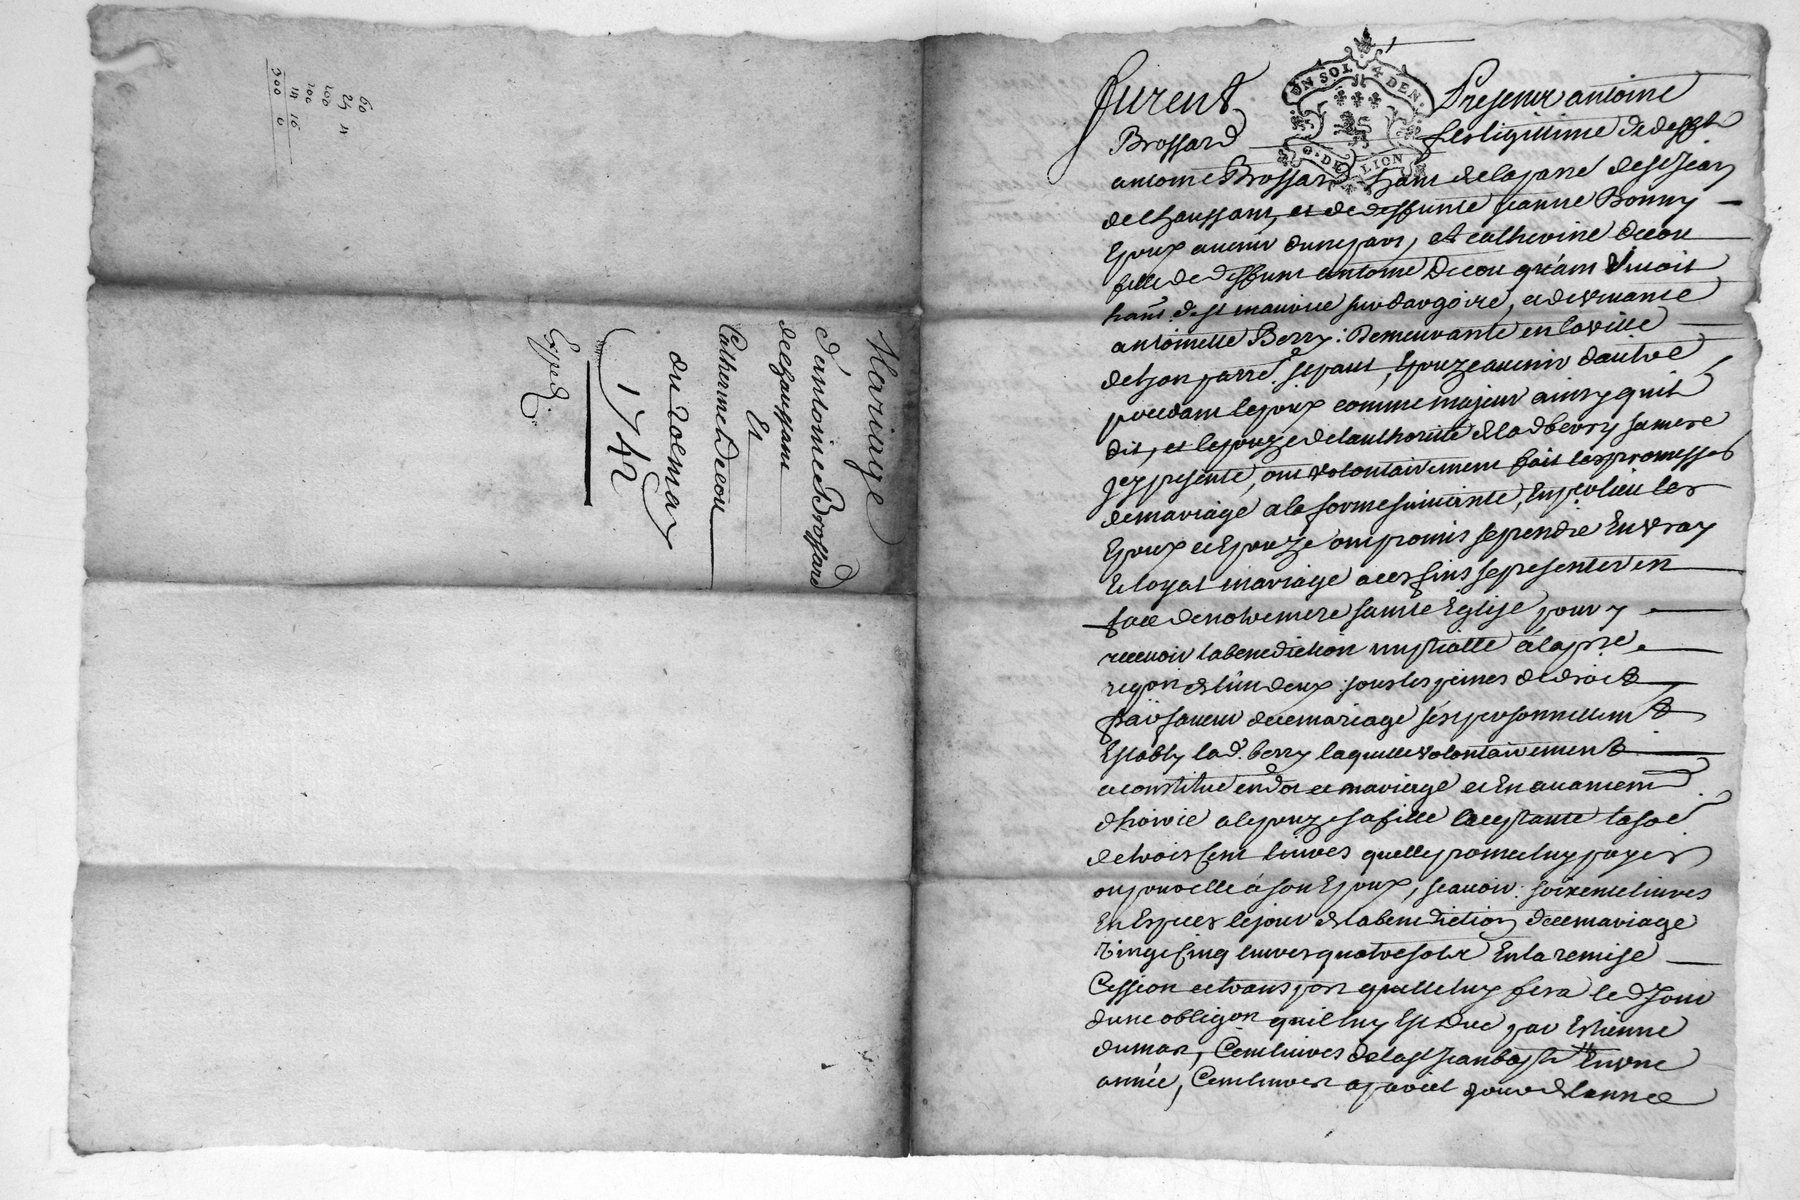 60
25 4
200
200
14 16
500 0
Mariage
d'antoine Brossard
de chaussant
Et
Catherine Decou
du 20e mar
1742
Expedié
furent Presents antoine
UN SOL 4 DEN.
G. DE LION
Brossard fils legitime de deffunt
antoine Brossard hant de la parre de st Jean
de chaussant, et de deffunte jeanne Bonny
Epoux avenir dune part, et catherine decou
fille de deffunt antoine Decou qréant Vivoit
hant de st maurice sur dargoire, et de vivante
antoinette Berry. Demeurante en la ville
de Lyon parre st paul, Epouze avenir dautre
procedant lepoux comme majeur ainsy quil
dit, et lepouze de lauthorité de lad berry sa mere
jcy presente, ont volontairement fait les promesses
de mariage a la forme suivante, En per lieu les
Epoux et Epouze ont promis se prendre En vray
Et loyal mariage a ces fins se presenter en
face de notre mere sainte Eglise pour y
recevoir la benediction nuptialle á la pre
reqon de lun deux sous les peines de droit
En faveur de ce mariage sest personnellement
Establye lad. berry laquelle volontairement
a constitué en dot ce mariage et En avancement
dhoirie a lepouze sa fille lacceptante la soe
de trois cent livres quelle promet luy payer
ou pour elle á son Epoux, scavoir soixente livres
En Especes le jour de la benediction de ce mariage
vingt cinq livres quatre sols En la remise
Cession et transport quelle luy fera led jour
dune obligon quil luy Est due par Estienne
dumas, Cent livres de la st jean baptte En une
année, Cent livres a pareil jour de lannée